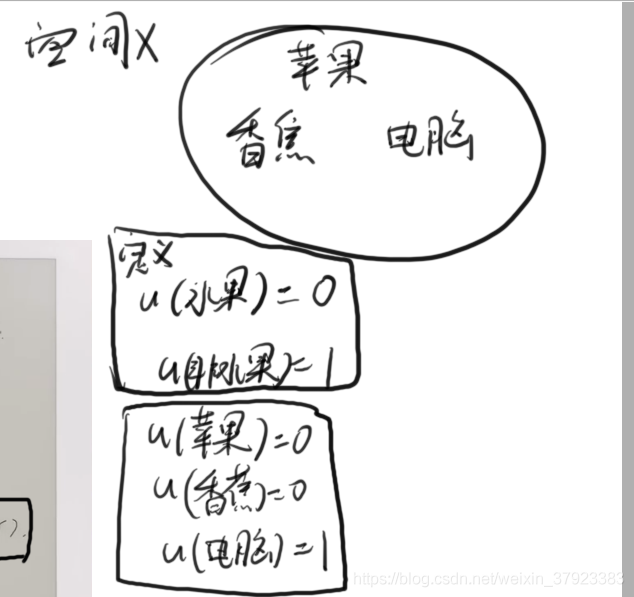 空间X
苹果
香焦 电脑
定义
u(水果)=0
u(非水果)=1
u(苹果)=0
u(香蕉)=0
u(电脑)=1
).
https://blog.csdn.net/weixin_37923383